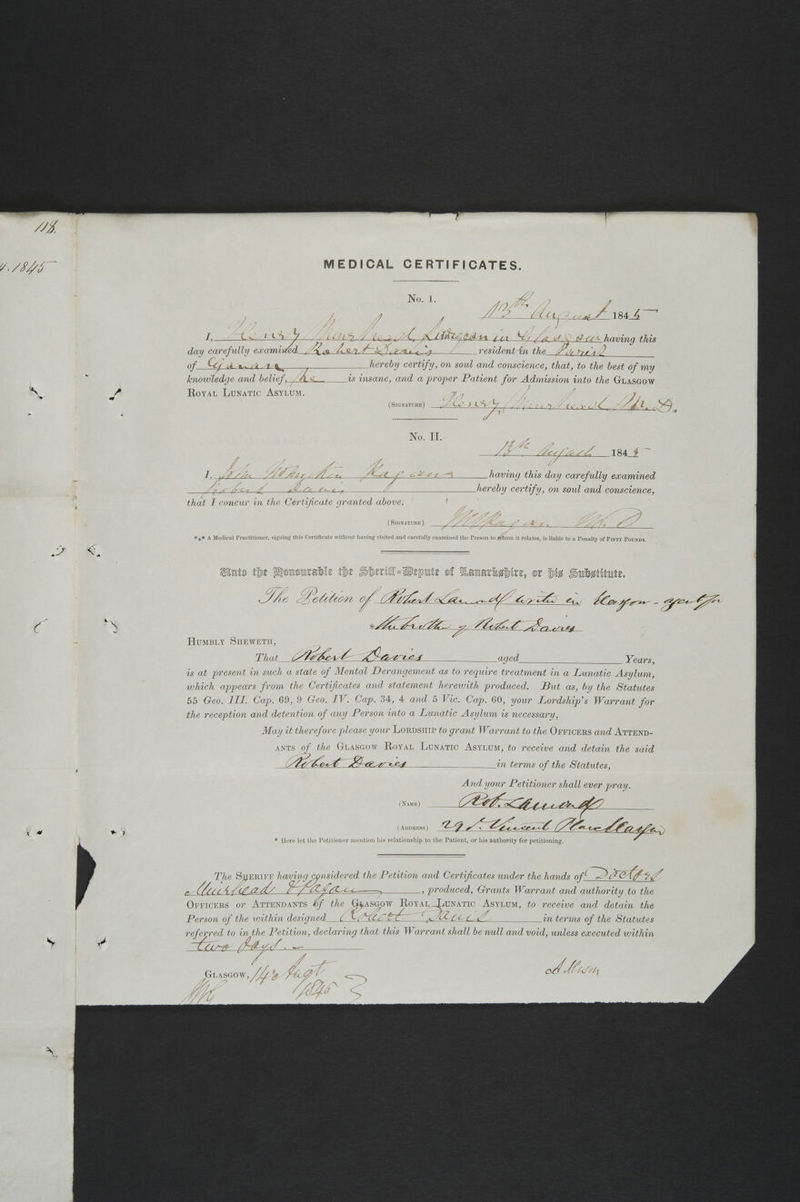 118.
1845
MEDICAL CERTIFICATES.
No. 1.
13th August 1845
I, Henry Muirhead, Surgeon in Glasgow having this
day carefully examined Robert Davies resident in the Parish
of Govan hereby certify, on soul and conscience, that, to the best of my
knowledge and belief, he is insane, and a proper Patient for Admission into the GLASGOW
ROYAL LUNATIC ASYLUM.
(SIGNATURE) Henry Muirhead M.D.
No. II.
13th August 1845
I, John Fagan having this day carefully examined
Robert Davies hereby certify, on soul and conscience,
that I concur in the Certificate granted above.
(SIGNATURE) Fagan M.D
*** A Medical Practitioner, signing this Certificate without having visited and carefully examined the Person to whom it relates, is liable to a Penalty of FIFTY POUNDS.
Unto the Honourable the Sheriff-Depute of Lanarkshire, or his Substitute.
The Petition of Robert Lamond writer in Glasgow - agent for
* the brother of Robert Davies
HUMBLY SHEWETH,
That Robert Davies aged Years,
is at present in such a state of Mental Derangement as to require treatment in a Lunatic Asylum,
which appears from the Certificates and statement herewith produced. But as, by the Statutes
55 Geo. III. Cap. 69, 9 Geo. IV. Cap. 34, 4 and 5 Vic. Cap. 60, your Lordship's Warrant for
the reception and detention of any Person into a Lunatic Asylum is necessary,
May it therefore please your LORDSHIP to grant Warrant to the OFFICERS and ATTEND-
ANTS of the GLASGOW ROYAL LUNATIC ASYLUM, to receive and detain the said
Robert Davies in terms of the Statutes,
And your Petitioner shall ever pray.
(NAME) Rob. Lamond
(ADDRESS) 29 St. Vincent Place Glasgow
* Here let the Petitioner mention his relationship to the Patient, or his authority for petitioning.
The SHERIFF having considered the Petition and Certificates under the hands of Doctors
Muirhead & Fagan, produced, Grants Warrant and authority to the
OFFICERS or ATTENDANTS of the GLASGOW ROYAL LUNATIC ASYLUM, to receive and detain the
Person of the within designed Robert Davies in terms of the Statutes
referred to in the Petition, declaring that this Warrant shall be null and void, unless executed within
two days.
GLASGOW, 14 Augt
1845
A Alison